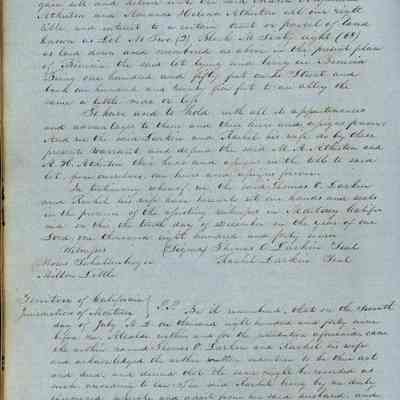 gain sell and deliver unto the said
Atherton and Hanna Helena Atherton all our right
title and interest to a certain tract or parcel of land
known as Lot No Two (2) Block No Sixty eight (68)
as laid down and numbered as above in the present plan
of Benicia the said lot lying and being in Benicia
Being one hundred and fifty feet on the Street and
back one hundred and twenty five feet to an alley the
same a little more or less
To have and to hold with all the appurtenances
and advantages to them and their heirs and assigns forever
And we the said Larkin and Rachel his wife do by these
presents warrant, and defend the said M. A. Atherton and
A H. Atherton their heirs and assigns in the title to said
lot from ourselves, our heirs and assigns forever.
In testimony whereof we the said Thomas O. Larkin
and Rachel his wife have hereunto set our hands and seals
in the presence of the attesting witnesses in Monterey Califor
nia on this the tenth day of December in the year of our
Lord one thousand eight hundred and forty seven
Witnesses (Signed) Thomas O Larkin Seal
Moses Schallenberger Rachel Larkin Seal
Milton Little
Territory of California
Jurisdiction of Monterey S.S. Be it remembered, that on the seventh
day of July A D one thousand eight hundred and forty nine
before me Alcalde within and for the jurisdiction aforesaid came
the within named Thomas O. Larkin and Rachel his wife
and acknowledged the within written indenture to be their act
and deed, and desired that the same might be recorded as
such according to law, She said Rachel being by me duly
examined separate and apart from her said husband, and